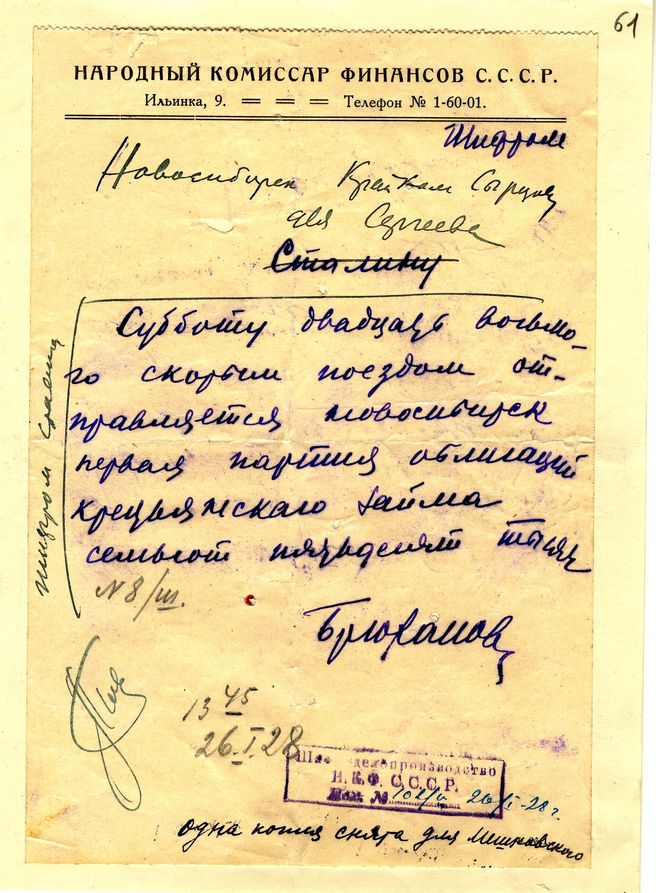 61
НАРОДНЫЙ КОМИССАР ФИНАНСОВ С. С. С. Р.
Ильинка, 9. = = = Телефон № 1-60-01.
Шифром
Новосибирск Крайком Сырцову
для Сергеева
Сталину
Субботу двадцать восьмо-
го скорым поездом от-
правляется Новосибирск
первая партия облигаций
крестьянскаго займа
семьсот пятьдесят тысяч
N 8/ш.
Брюханов
шифром
13 45
26.I.28
Шифроделопроизводство
Н. К. Ф. С. С. С. Р.
Исх. № 102/ш 26/I-28 г.
одна копия снята для Мешковского